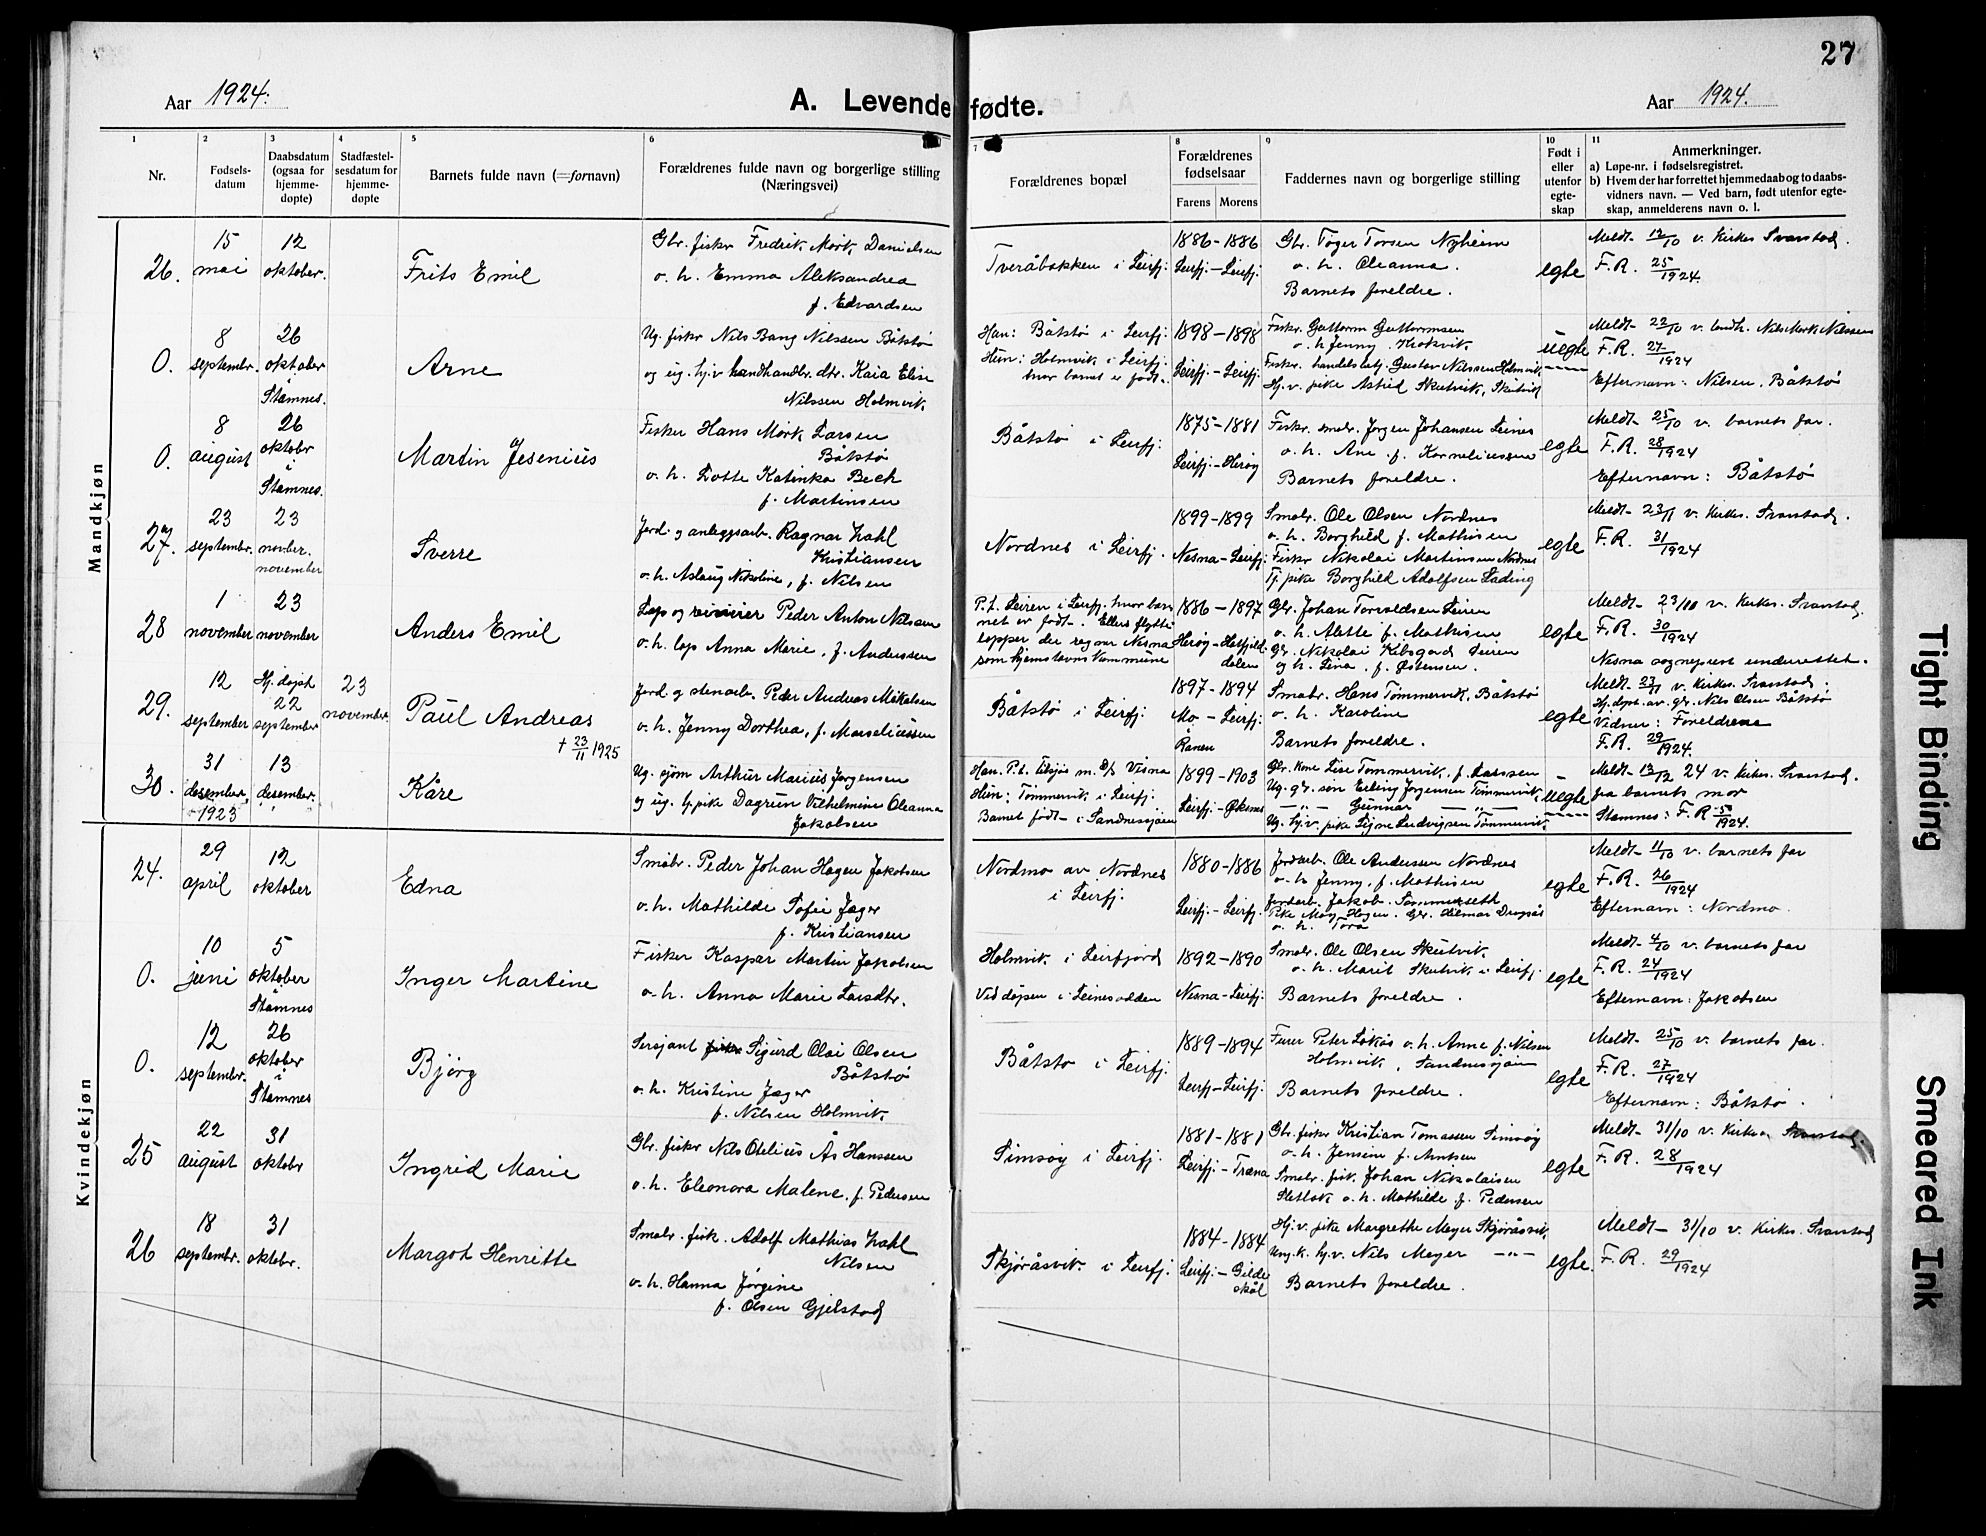 27
Aar 1924.
A. Levendefødte.
Aar 1924.
1 2 3 4 5 6 7 8 9 10 11
Nr.
Fødsels-
datum
Daabsdatum
(ogsaa for
hjemme-
døpte)
Stadfæstel-
sesdatum for
hjemme-
døpte
Barnets fulde navn (=fornavn)
Forældrenes fulde navn og borgerlige stilling
(Næringsvei)
Forældrenes bopæl
Forældrenes
fødselsaar
Farens Morens
Faddernes navn og borgerlige stilling
Født i
eller
utenfor
egte-
skap
Anmerkninger.
a) Løpe-nr. i fødselsregistret.
b) Hvem der har forrettet hjemmedaab og to daabs-
vidners navn. — Ved barn, født utenfor egte-
skap, anmelderens navn o. l.
Mandkjøn
26.
15
mai
12
oktober.
Frits Emil
Gbr. fisker Fredrik Mørk Danielsen
o. h. Emma Aleksandrea
f. Edvardsen
Tveråbakken i Leirfj:
1886-1886
Leirfj:-Leirfj:
Gbr. Tøger Torsen Nyheim
o. h. Oleanna.
Barnets foreldre.
egte
Meldt 12/10 v. Kirkes. Svarstad.
F. R. 25/1924.
0.
8
septembr.
26
oktober
i
Stamnes.
Arne
Ug. fiskr Nils Bang Nilssen Båtstø
og ug. hj.v handhandlr. dtr. Kaia Elise
Nilssen Holmvik.
Han: Båtstø i Leirfj:
Hun: Holmvik i Leirfj:
hvor barnet er født.
1898-1898
Leirfj:-Leirfj:
Fiskr. Guttorm Guttormsen
o. h Jenny
Fiskr. handelsbetj. Gustav Nilssen Holmvik
Hj. v. pike Astrid Skutvik, Skutvik
uegte
Meldt 22/10 v. landh. Nils Mørk Nilssen
F. R. 27/1924
Efternavn: Nilsen, Båtstø
0.
8
august
26
oktobr
i
Stamnes.
Martin Jesenius
Fisker Hans Mørk Larsen
Båtstø
o. h. Lotte Katinka Bech
f. Martinsen
Båtstø i Leirfj:
1875-1881
Leirfj:-Herøy
Fiskr. smabr. Jørgen Johansen Leines
o. h. Ane f. Korneliussen
Barnets foreldre.
egte
Meldt 25/10 v. barnets far.
F. R. 28/1924
Efternavn: Båtstø
27.
23
septembr.
23
novber.
november
Sverre
Jord. og anleggsarb. Ragnar Zahl
Kristiansen
o. h. Aslaug Nikoline, f. Nilsen
Nordnes i Leirfj.
1899-1899
Nesna-Leirfj:
Smabr. Ole Olsen Nordnes
o. h. Borghild f. Mathisen
Fiskr Nikolai Martinsen Nordnes
Tj. pike Borghild Adolfsen Lading
egte
Meldt 23/11 v. Kirkes. Svarstad.
F. R. 31/1924
28
1
november
23
november
Anders Emil
Lap og Peder Anton Nilssen
o. h. lap Anna Marie, f. Anderssen
P. t. Leiren i Leirfj. hvor bar-
net er født. Ellers flytt-
lapper der regner Nesna
som hjemstavnskommune
1886-1897
Herøy-Hatfjeld-
dalen
Gbr. Johan Torvaldsen Leiren
o. h. Alette f. Mathisen
Gbr. Nikolai Kibsgård Leiren
og h. Lina, f. Østensen.
egte
Meldt 23/10 v. Kirkes. Svarstad.
F. R. 30/1924
Nesna sogneprest underrettet.
29.
12
september
Hj. døpt
22
september
23
november
Paul Andreas
† 23/11 1925
Jord. og stenarb. Peder Andreas Mikalsen
o. h. Jenny Dorthea, f. Marseliussen
Båtstø i Leirfj:
1897-1894
Mo-Leirfj:
Ranen
Smabr. Hans Tømmervik, Båtstø
o. h. Karoline
Barnets foreldre.
egte
Meldt 23/11 v. Kirkes. Svarstad.
Hj. døpt. av. gbr. Nils Olsen Båtstø
Vidner: Foreldrene
F. R. 29/1924.
30.
31
desember,
1923
13
desember.
Kåre
Ug. sjøm Arthur Marius Jørgensen
og ug. tj pike Dagrun Vilhelmine Oleanna
Jakobsen
Han. P. t. tilsjøs m. D/S Visna
Hun: Tømmervik i Leirfj:
Barnet født i Sandnessjøen
1899-1903
Leirfj:-Øksnes
Gbr. kone Lise Tømmervik, f. Larssen
Ug. gbr. søn Erling Jørgensen Tømmervik,
—„— Gunnar —„—
Ug. hj. v. pike Signe Ludvigsen Tømmervik.
uegte
Meldt 13/12 24 v. Kirkes. Svarstad.
fra barnets mor
Stamnes: F. R 50/1924.
Kvindekjøn
24.
29
april
12
oktober
Edna
Småbr. Peder Johan Hagen Jakobsen
o. h. Mathilde Sofie Jæger
f. Kristiansen
Nordmo av Nordnes
i Leirfj:
1880-1886
Leirfj:-Leirfj.
Jordarb. Ole Andersen Nordnes
o. h Jenny, f. Mathisen
Jordarb. Jakob. Sommerseth
Pike May Hagen. Gbr. Hilmar
o. h. Tora
egte
Meldt 11/10 v. barnets far
F. R. 26/1924
Efternavn: Nordmo.
0.
10
juni
5
oktober
i
Stamnes
Inger Martine
Fisker Kaspar Martin Jakobsen
o. h. Anna Marie Larsdtr.
Holmvik i Leirfjord
Ved døpen i Leinesodden
1892-1890
Nesna-Leirfj:
Smabr. Ole Olsen Skutvik
o. h. Marit Skutvik i Leirfj.
Barnets foreldre.
egte
Meldt 4/10 v. barnets far
F. R. 24/1924
Efternavn: Jakobsen
0.
12
septembr.
26
oktober
i
Stamnes
Bjørg
Sersjant Sigurd Olai Olsen
Båtstø
o. h. Kristine Jæger
f. Nilsen Holmvik.
Båtstø i Leirfj:
1889-1894
Leirfj-Leirfj:
Furer Peter Løkås o. h. Anne f. Nilsen
Holmvik, Sandnessjøen
Barnets foreldre.
egte
Meldt 25/10 v. barnets far.
F. R. 27/1924
Efternavn: Båtstø.
25
22
august
31
oktobr
Ingrid Marie
Gbr. fiskr Nils Otelius Ås Hanssen
o. h. Eleonora Malene, f. Pedersen
Simsøy i Leirfj.
1881-1881
Leirfj:-Træna
Gbr. fiskr Kristian Tomassen Simsøy
o. h. Jensine f. Arntsen
Smabr. fisk. Johan Nikolaisen
Sletbak o. h. Mathilde f. Pedersen
egte
Meldt 31/10 v. Kirkes. Svarstad.
F. R. 28/1924
26
18
septembr.
31
oktobr.
Margot Henriette
Smabr. fisk. Adolf Mathias Zahl
Nilsen
o. h. Hanna Jørgine
f. Olsen Gjelstad
Skjøråsvik i Leirfj.
1884-1884
Leirfj:-Gilde
skål
Hj. v. pike Margrethe Meyer Skjøråsvik,
Ung. k. hj. v. Nils Meyer —„—
Barnets foreldre.
egte.
Meldt 31/10 v. Kirkes. Svarstad
F. R. 29/1924
Tight Binding
Smeared Ink